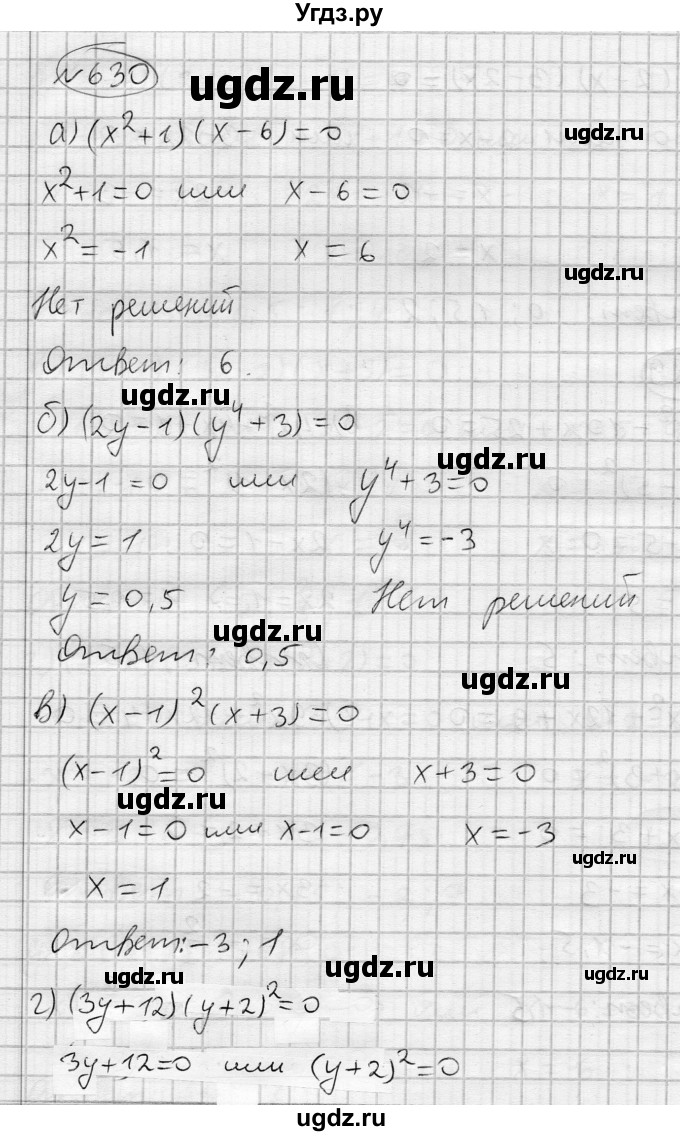 Угдз.ру
№630
ugdz.ru
ugdz.ru
а) (x²+1)(x-6)=0
x²+1=0 или x-6=0
ugdz.ru
x²=-1 x=6
ugdz.ru
Нет решений
Ответ: 6.
ugdz.ru
б) (2y-1)(y⁴+3)=0
ugdz.ru
2y-1=0 или y⁴+3=0
2y=1 y⁴=-3
y=0,5 Нет решений
ugdz.ru
Ответ: 0,5
ugdz.ru
в) (x-1)²(x+3)=0
(x-1)²=0 или x+3=0
ugdz.ru
x-1=0 или x-1=0 x=-3
ugdz.ru
x=1
ugdz.ru
Ответ: -3; 1
ugdz.ru
ugdz.ru
ugdz.ru
г) (3y+12)(y+2)²=0
3y+12=0 или (y+2)²=0
ugdz.ru